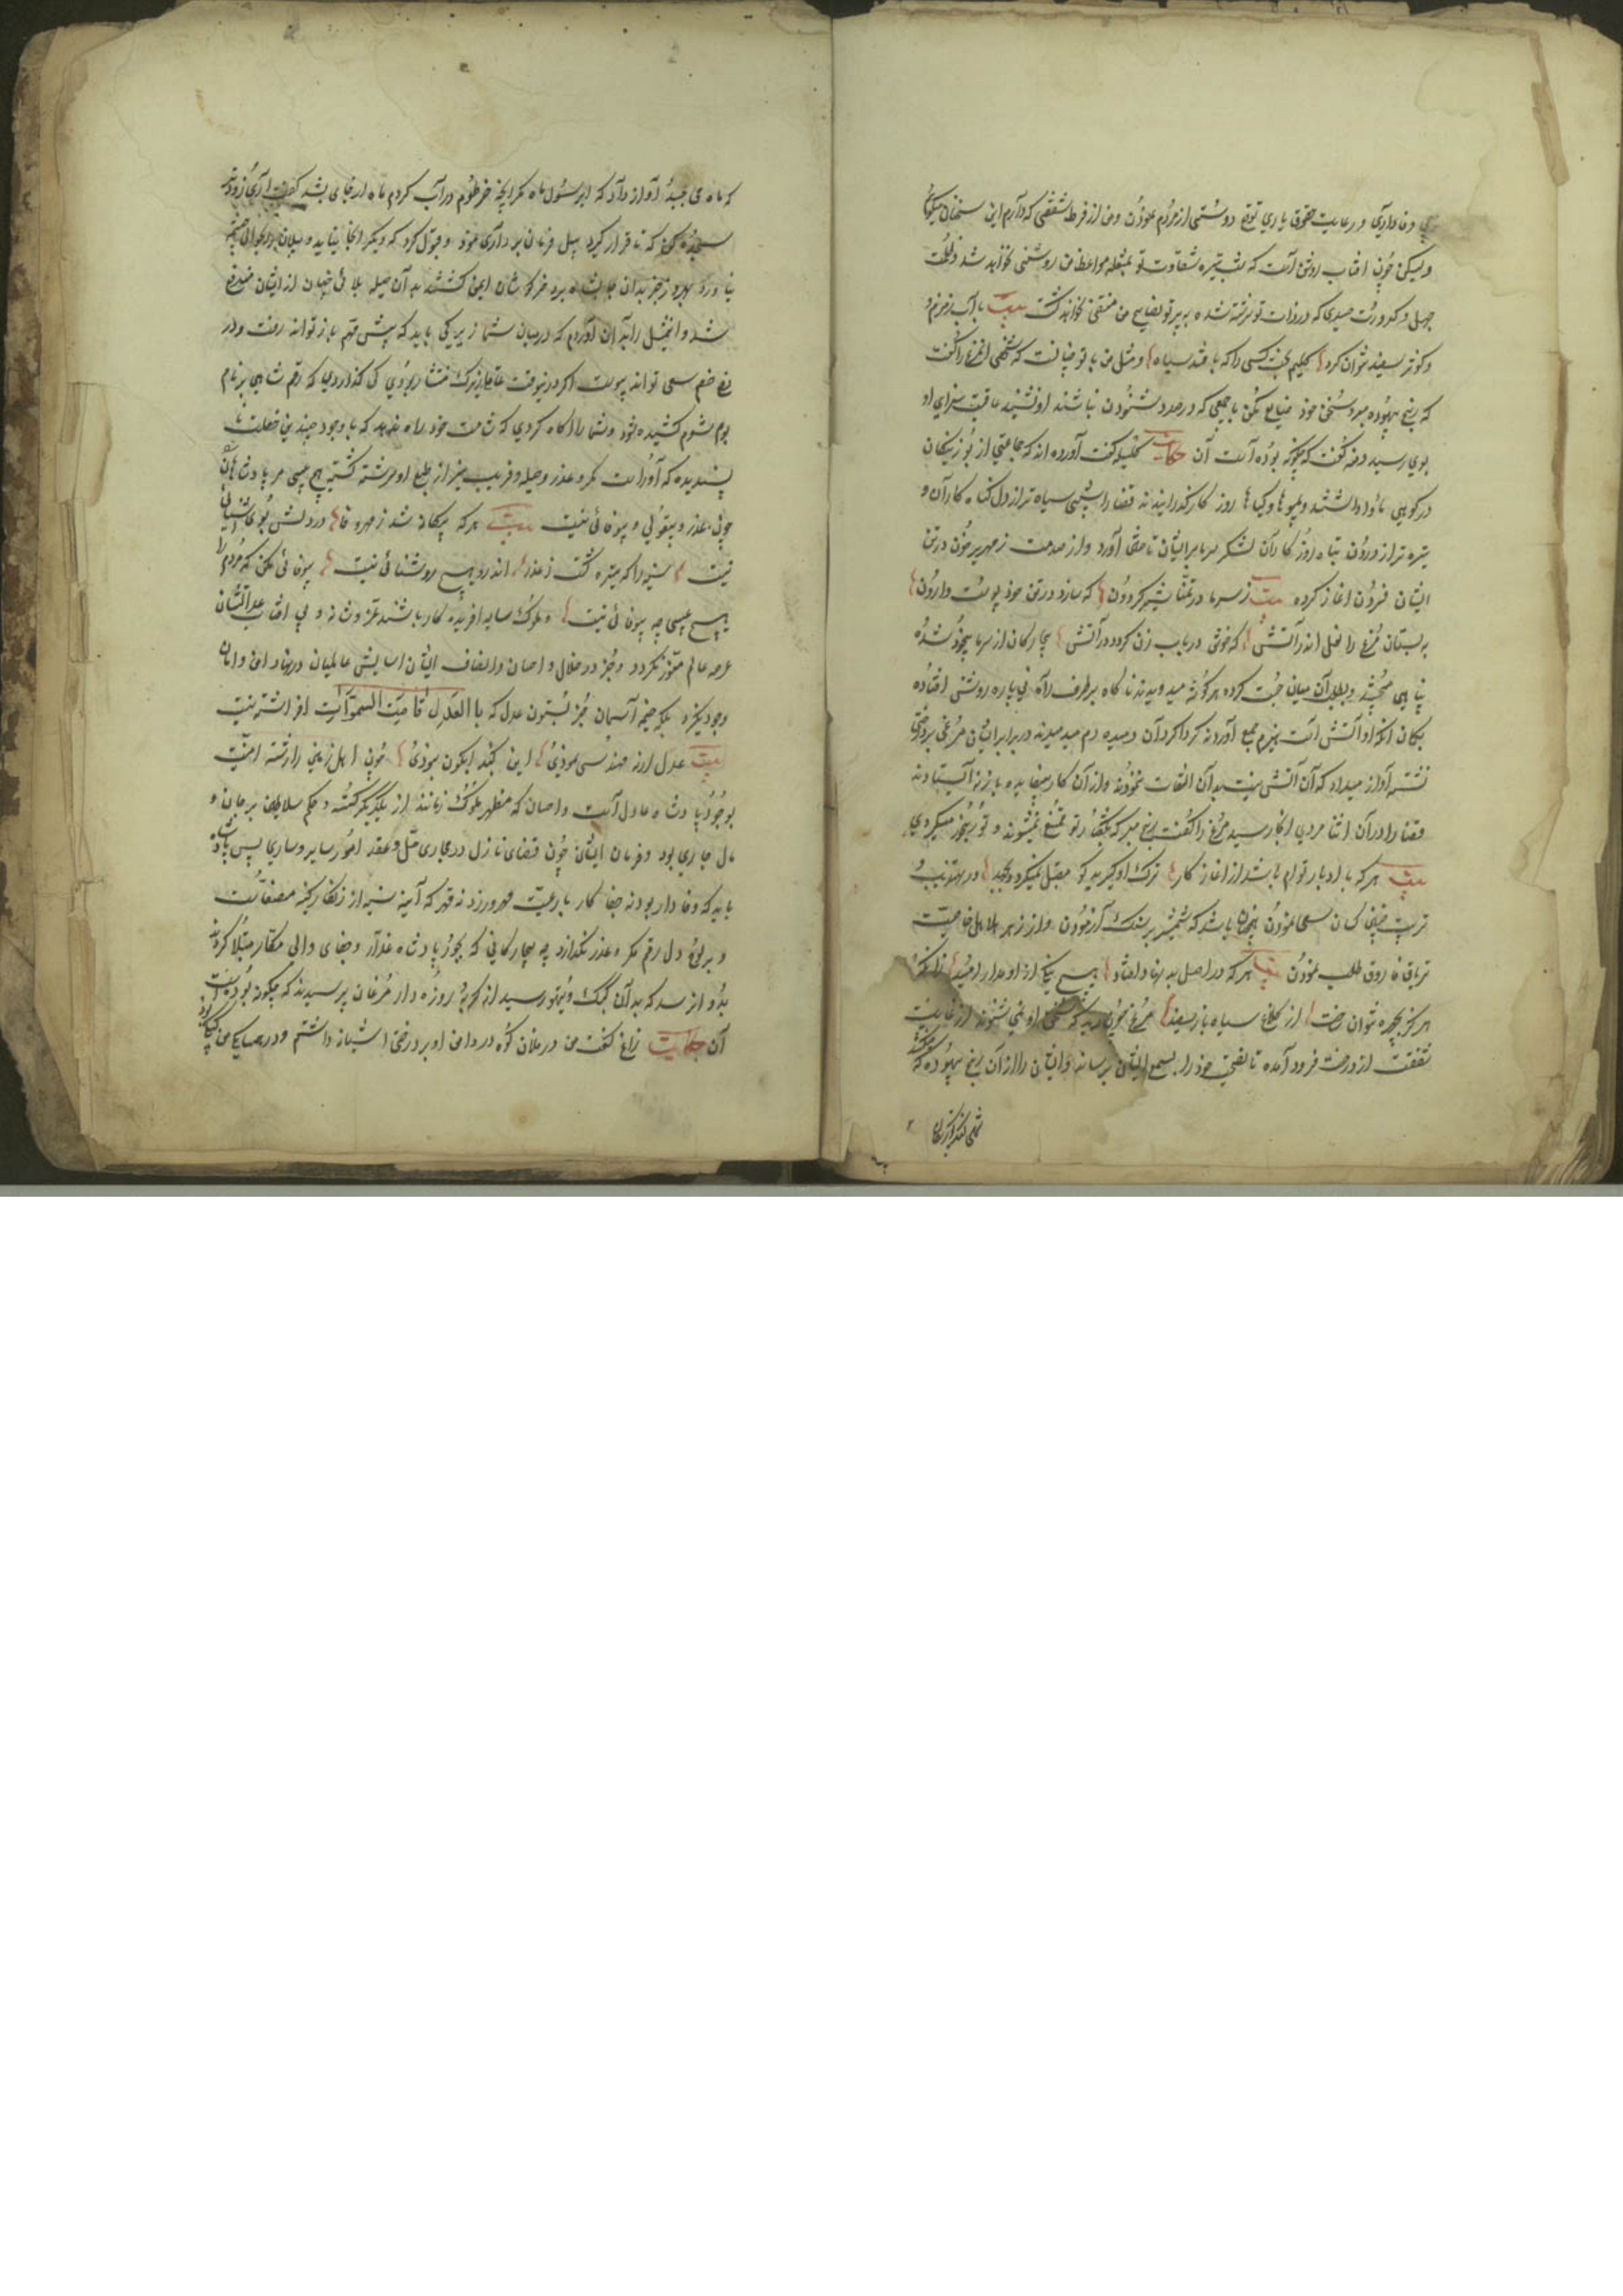 و وفاداری و رعایت حقوق یاری توقع دوستی از مردم نمودن و من از فرط شفقتی که دارم این سخنان میکویم
ولیکن چون افتاب روشن است که شب تیره شقاوت تو بمشعله مواعظ من روشنی نخواهد شد و ظلمت
جهل و کدورت حسدی که در ذات تو سرشته شده به پرتو نصایح من منتفی نخواهد کشت بیت باب زمزم و
و کوثر سفید نتوان کرد کلیم بخت کسی را که بافتند سیاه و مثل من با تو چنانست که شخصی ان مرغ را کفت
که رنج بیهوده مبر و سخن خود ضایع مکن با جمعی که در صدد شنودن نباشند او نشنید عاقبت سزای او
بوی رسید دمنه کفت که چکونه بوده است آن حکایت کلیله کفت آورده اند که جماعتی از بوزینکان
در کوهی ماوا داشتند و بمیوها و کیاها روز کار کذرانیدند قضا را شبی سیاه تر از دل کناه کاران و
تیره تر از درون تباه روز کاران لشکر سرما بر ایشان تاختن آورد و از صدمت زمهریر خون در تن
ایشان فسردن اغاز کرده بیت ز سرما در تمنا شیر کردون که سازد در تن خود پوست وارون
به بستان مرغ را نخل اندر آتش که خوش در باب زن کردد در آتش بیچارکان از سرما بیخود شده
پناهی میجستند و بطلب آن میان چست کرده هر کوشه میدویدند ناکاه بر طرف راه نی پاره روشنی افتاده
بکمان انکه او آتش است هیزم جمع آوردند کرداکرد آن و میدم دم میدمیدند در برابر ایشان مرغی بر درختی
نشسته آواز میداد که آن آتش نیست بدان التفات نمودند و از آن کار بیفایده باز نه ایستادند
قضا را در آن اثنا مردی انجا رسید مرغ را کفت رنج مبر که بکفتار تو ممتنع نمیشوند و تو رنجور میکردی
بیت هر که با ادبار توام باشد از اغاز کار ترک او کیرید کو مقبل نمیکردد بجهد و در تهذیب و
تربیت چنین کسان سعی نمودن همچنان باشد که شمشیر بر سنک آزمودن و از زهر هلاهل خاصیت
تریاق فاروق طلب نمودن بیت هر که در اصل بد نهاد افتاد هیچ نیکی ازو مدار امید زانکه
هرکز بجهد نتوان ساخت از کلاغ سیاه باز سفید مرغ چون دید که سخن او نمی شنوند از غایت
شفقت از درخت فرود آمده تا نصیحت خود را بسمع ایشان برساند و ایشان را از آن رنج بیهوده که
که ماه می جنبد آواز داد که ای رسول ماه مکر انچه خرطوم در آب کردم ماه از جای بشد کفت آری زودتر
سجده کن که تا قرار کیرد پیل فرمان بر داری نمود و قبول کرد که دیکر انجا نیاید و پیلان را بحوالی چشمه
نیاورد بهروز خبر بدان جانب شاه برد خرکوشان ایمن کشتند بدان حیله بلائی چنان از ایشان مندفع
شد و این مثل را بدان آوردم که در میان شما زیرکی باید که پیش مهم باز تواند رفت و در
دفع خصم سعی تواند پیوست اکر درینوقت عاقل زیرک مشار بودی کی کذاردی که رقم شاهی بر نام
بوم شوم کشیده شود و شما را آکاه کردی که شامت خود راه ندهد که با وجود چندین خصلت نا
پسندیده که او راست مکر و غدر و حیله و فریب نیز از طبع او سرشته کشته هیچ عیبی مر پادشاهان
چون غدر و بدقولی و بیوفائی نیست بیت هر که بیکانه شد ز مهر و وفا در دلش بوی آشنائی
نیست سینه را که تیره کشت ز غدر اندرو هیچ روشنائی نیست بیوفائی مکن که مردم را
هیچ عیبی چو بیوفائی نیست و ملوک سایه افریده کار باشند عز و شانه و بی افتاب عدل ایشان
عرصه عالم منور نکردد و جز در ظلال و احسان و انصاف ایشان اسایش عالمیان در مهاد امن و امان
وجود نکیرد بلکه خیمه آسمان جز بستون عدل که با العدل قامت السموات افراشته نیست
بیت عدل ار نه مهندسی نمودی این کنبد ابکون نبودی چون اهل زمین را رشته امنیت
بوجود پادشاه عادل است و احسان که مظهر ملوک زمانند از یکدیکر کسسته و حکم سلاطین بر جان و
مال جاری بود و فرمان ایشان چون قضای نازل در مجاری حل و عقد امور سایر و ساری پس پادشاه
باید که وفادار بود نه جفا کار با رعیت مهر ورزد نه قهر که آینه سینه از زنکار کینه مصفاست
و بر لوح دل رقم مکر و غدر نکذارد چه بیچارکانی که بجور پادشاه غدار و جفای والی مکار مبتلا کردند
بدو ان رسد که بدان کبک و تیهو رسید از کربه روزه دار مرغان پرسیدند که چکونه بوده است
آن حکایت زاغ کفت من در فلان کوه در دامن او بر درختی اشیانه داشتم و در همسایکی من کبکی بود